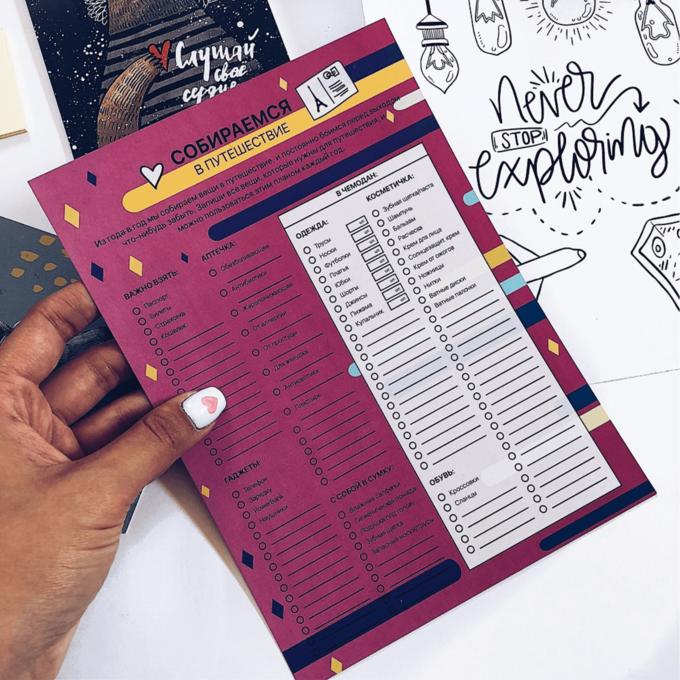 Слушай
своё
сердце
never
STOP
exploring
СОБИРАЕМСЯ
В ПУТЕШЕСТВИЕ
Из года в год мы собираем вещи в путешествие, и постоянно боимся перед выходом
что-нибудь забыть. Запиши все вещи, которые нужны для путешествия, и
можно пользоваться этим планом каждый год.
ВАЖНО ВЗЯТЬ:
Паспорт
Билеты
Страховка
Кошелек
АПТЕЧКА:
Обезболивающее
Антибиотики
Жаропонижающее
От аллергии
От простуды
Для желудка
Антисептики
Пластырь
В ЧЕМОДАН:
ОДЕЖДА:
Трусы
Носки
Футболки
Платья
Юбки
Шорты
Джинсы
Пижама
Купальник
КОСМЕТИЧКА:
Зубная щетка/паста
Шампунь
Бальзам
Расческа
Крем для лица
Солнцезащит. крем
Крем от ожогов
Ножницы
Нитки
Ватные диски
Ватные палочки
ОБУВЬ:
Кроссовки
Сланцы
ГАДЖЕТЫ:
Телефон
Зарядку
Powerbank
Наушники
С СОБОЙ В СУМКУ:
Влажные салфетки
Гигиеническая помада
Подушка под голову
Зубная щетка
Запасные носки/трусы